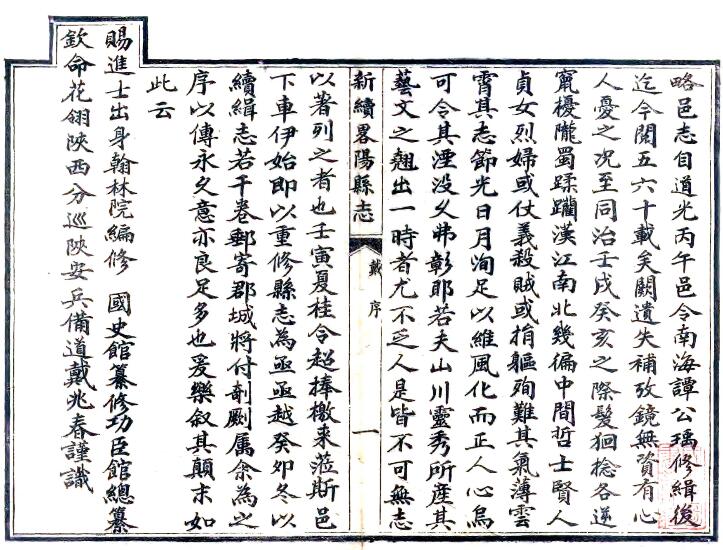 略邑志自道光丙午邑令南海譚公瑀修緝後
迄今閱五六十載矣闕遺失補攷鏡無資有心
人憂之况至同治壬戌癸亥之際髮徊捻各逆
竄擾隴蜀蹂躪漢江南北幾徧中間哲士賢人
貞女烈婦或仗義殺賊或捐軀殉難其氣薄雲
霄其志節光日月洵足以維風化而正人心烏
可令其湮没乆弗彰耶若夫山川靈秀所產其
藝文之翹出一時者尤不乏人是皆不可無志
新續畧陽縣志
戴序
一
以著列之者也壬寅夏桂令超捧檄來蒞斯邑
下車伊始即以重修縣志為亟亟越癸夘冬以
續緝志若干卷郵寄郡城將付剞劂属余為之
序以傳永久意亦良足多也爰樂叙其顛末如
此云
賜進士出身翰林院編修 國史館纂修功臣館總纂
欽命花翎陜西分巡陜安兵備道戴兆春謹識